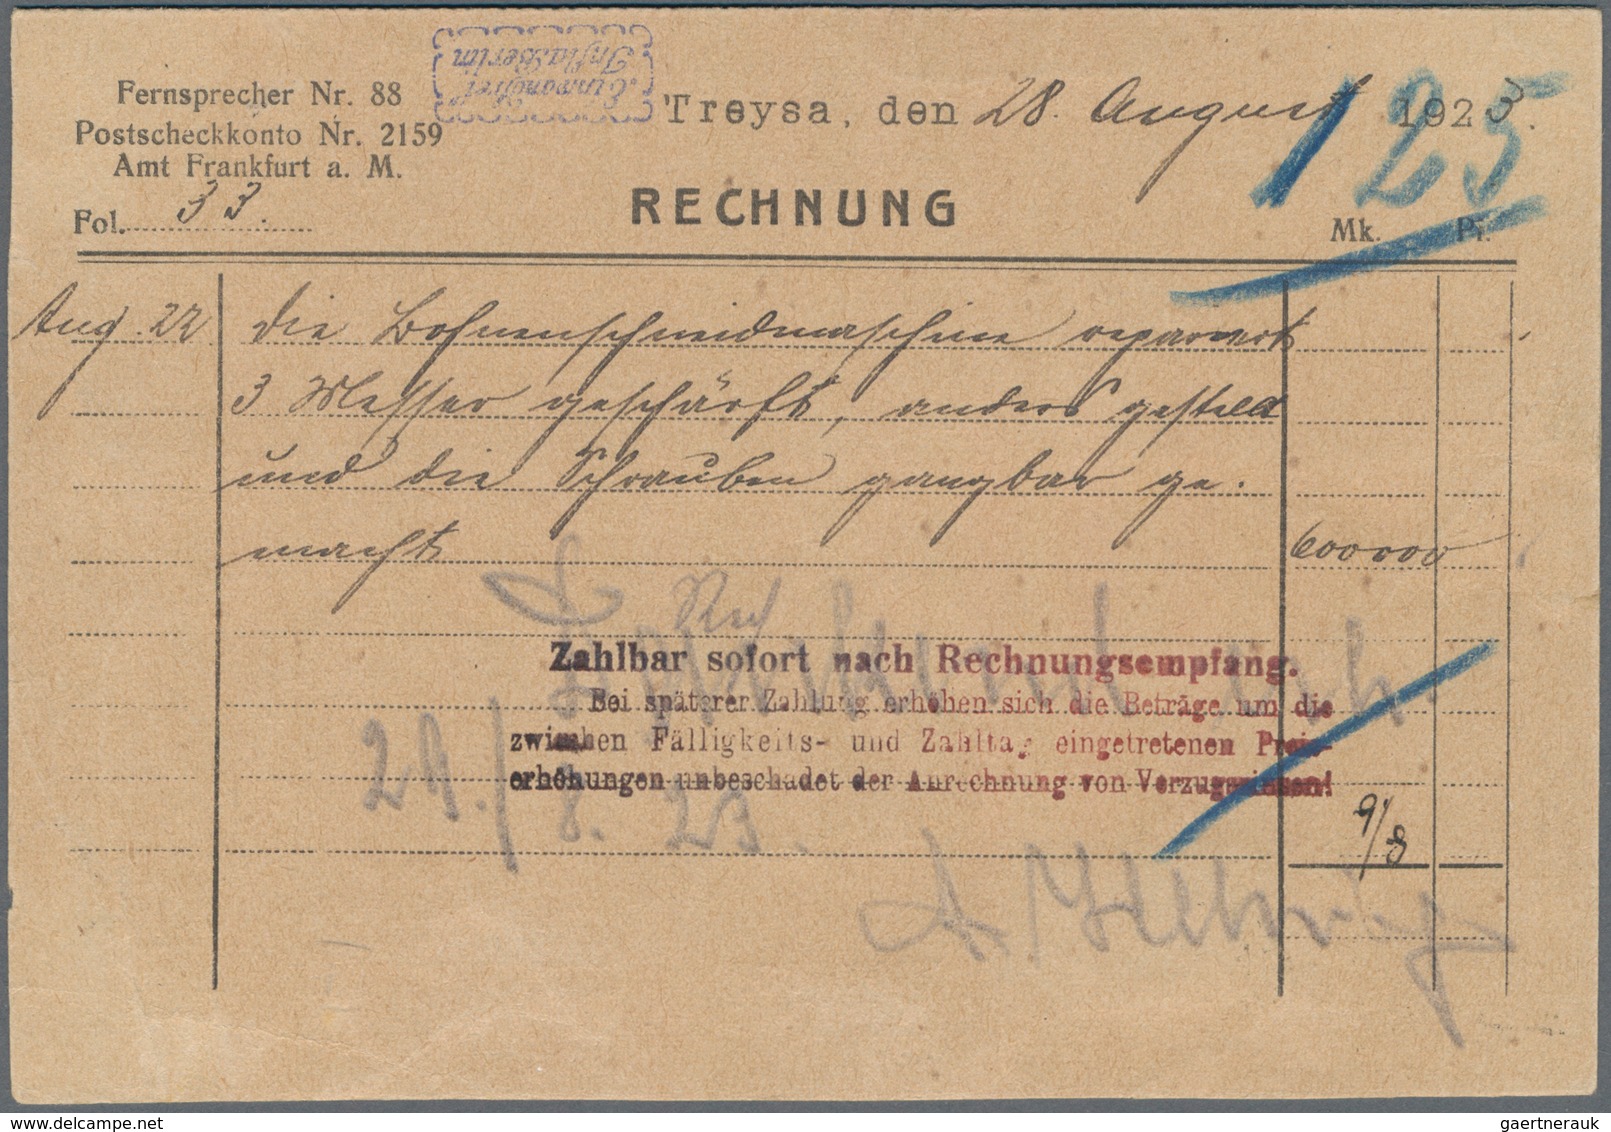 "Einwandfrei"
Infla Berlin
Fernsprecher Nr. 88
Postscheckkonto Nr. 2159
Amt Frankfurt a. M.
Fol. 33.
Treysa, den 28. August 1923.
125
RECHNUNG
Mk. Pf.
Aug. 22 die Bohnenschneidmaschine reparirt
3 Messer geschärft, anders gestellt
und die Schrauben gangbar ge-
macht 600000
Zahlbar sofort nach Rechnungsempfang.
Bei späterer Zahlung erhöhen sich die Beträge um die
zwischen Fälligkeits- und Zahltag eingetretenen Preis-
erhöhungen unbeschadet der Anrechnung von Verzugszinsen!
29./8. 23.
9/8